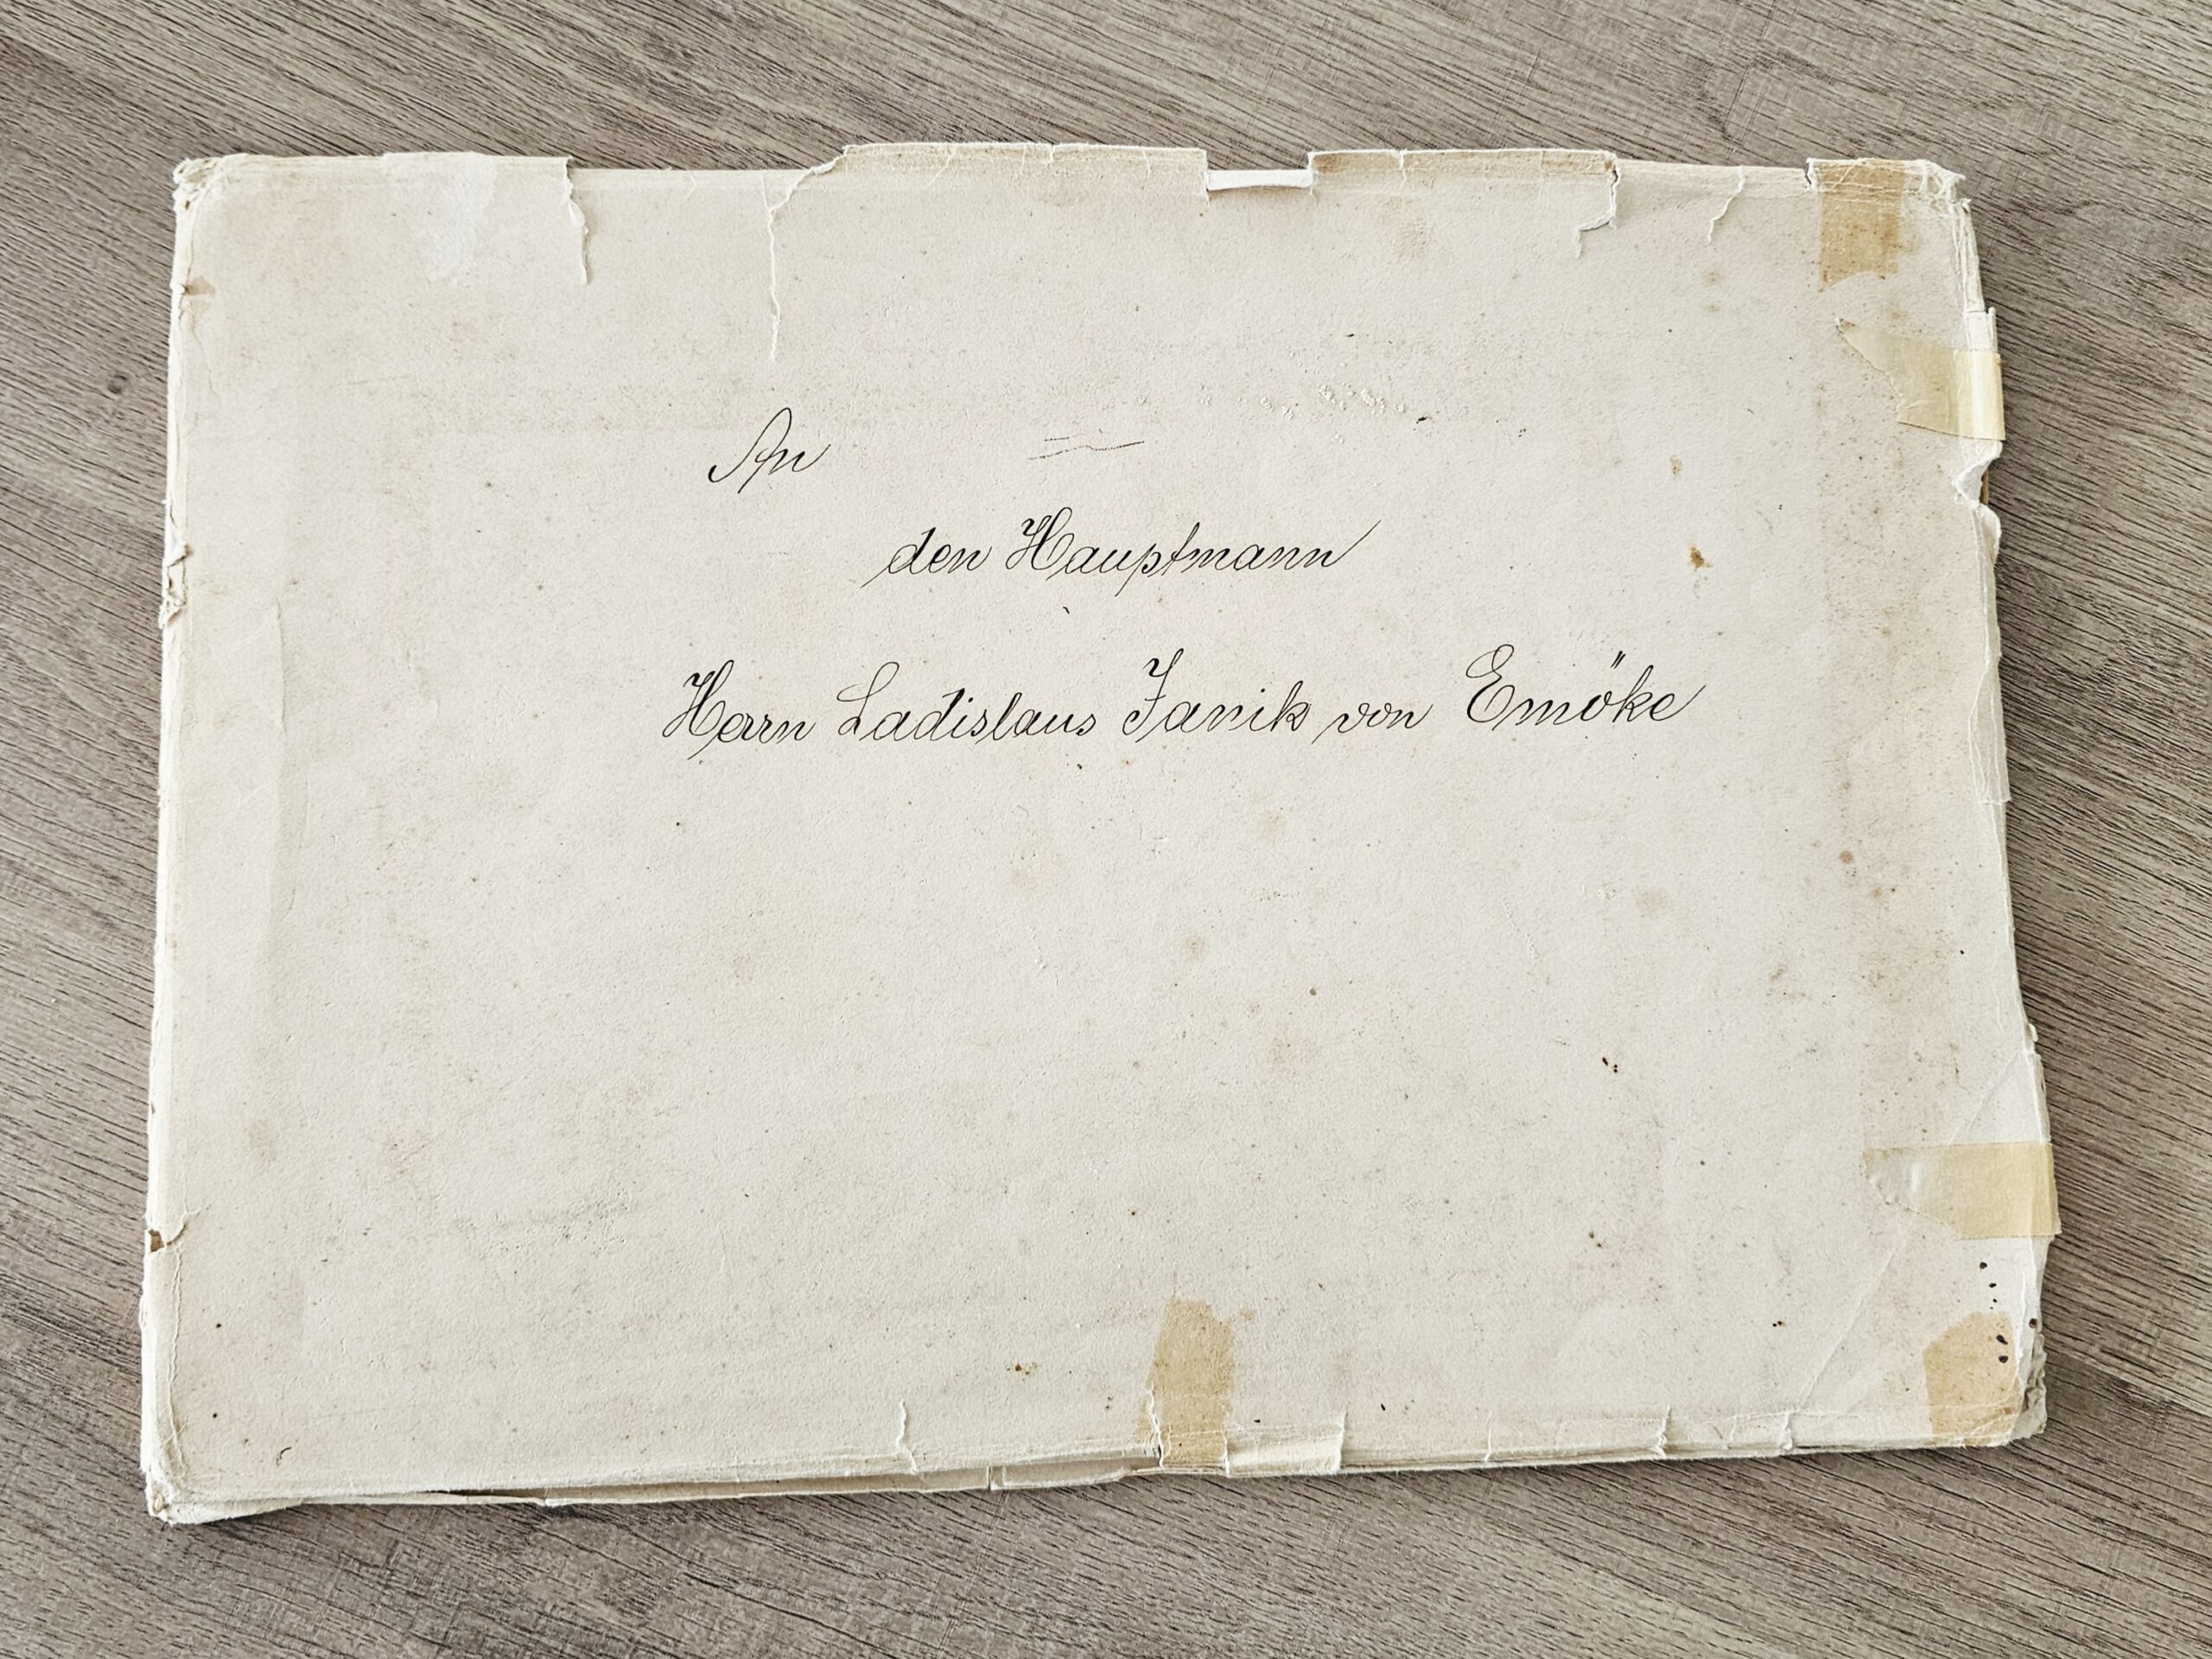 An
den Hauptmann
Herrn Ladislaus Janik von Emöke